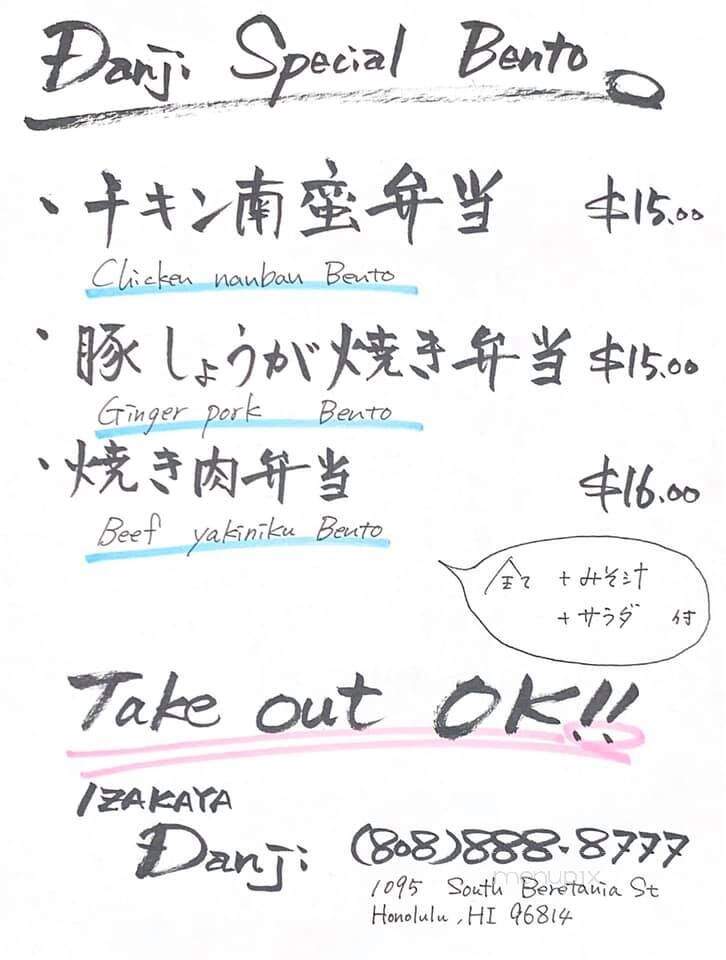 Danji Special Bento
・チキン南蛮弁当 $15.00
Chicken nanban Bento
・豚しょうが焼き弁当 $15.00
Ginger pork Bento
・焼き肉弁当 $16.00
Beef yakiniku Bento
全て +みそ汁
+サラダ 付
Take out OK!!
IZAKAYA
Danji (808)888-8777
menupix
1095 South Beretania St
Honolulu, HI 96814